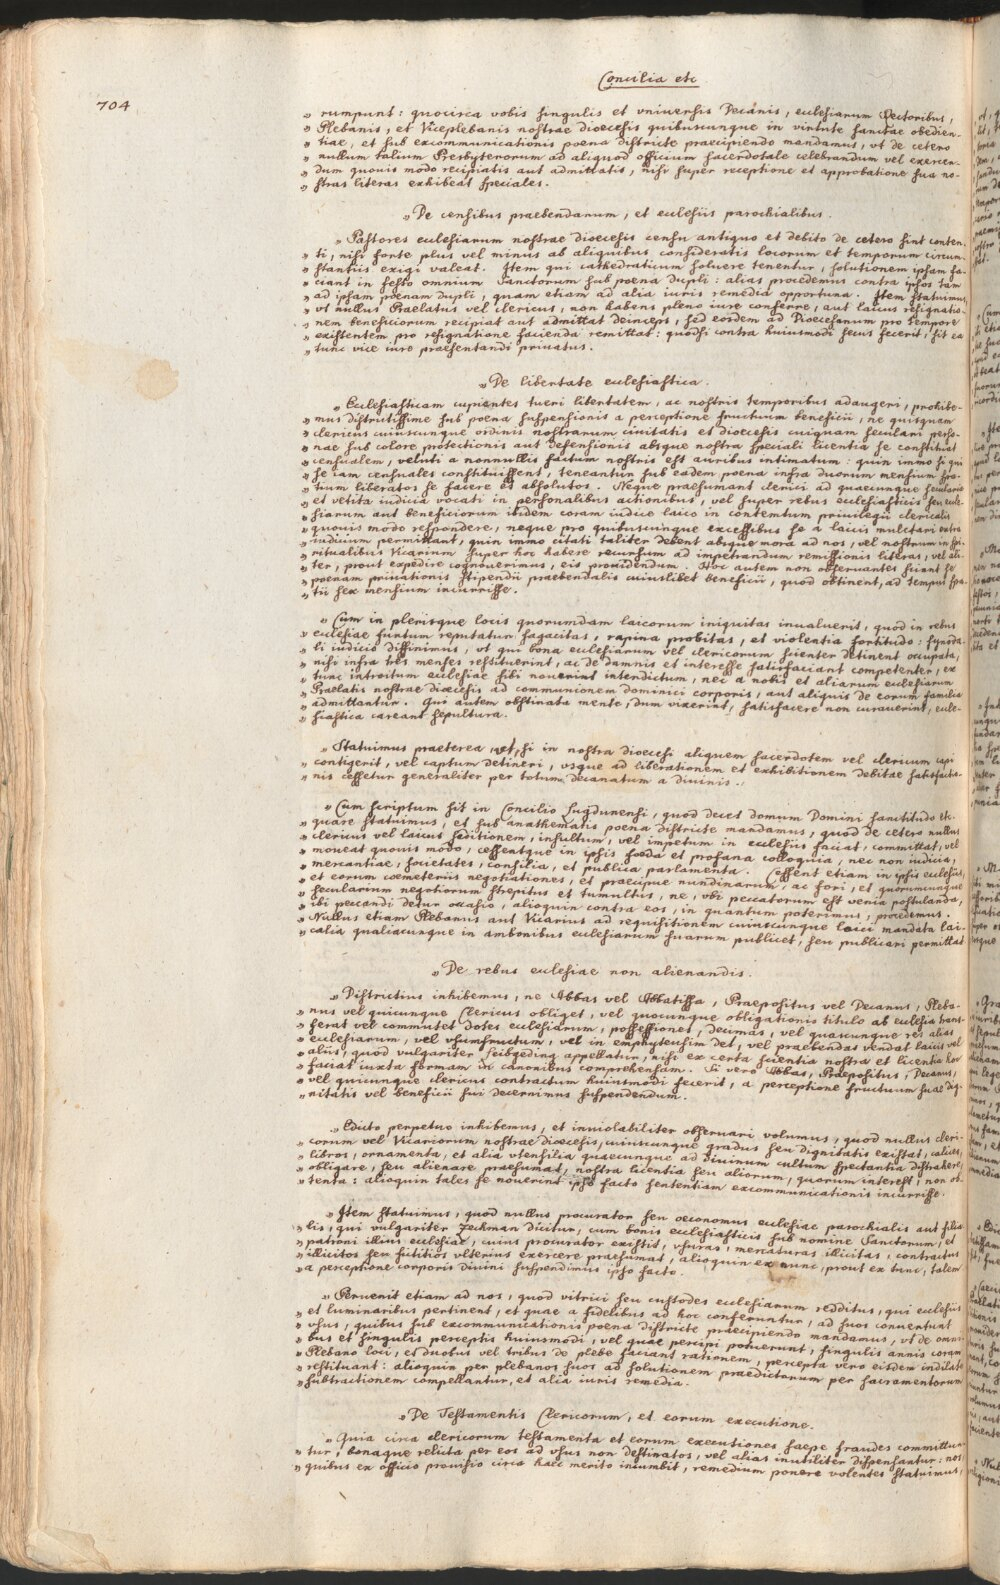 Concilia etc
704
» rumpunt: quocirca vobis singulis et vniversis Decanis, ecclesiarum Rectoribus,
» Plebanis, et Viceplebanis nostrae dioecesis quibuscunque in virtute sanctae obedien-
» tiae, et sub excommunicationis poena districte praecipiendo mandamus, vt de cetero
» nullum talium Presbyterorum ad aliquod officium sacerdotale celebrandum vel exercen-
» dum quouis modo recipiatis aut admittatis, nisi super receptione et approbatione sua no-
» stras literas exhibeat speciales.
» De censibus praebendarum, et ecclesiis parochialibus.
» Pastores ecclesiarum nostrae dioecesis censu antiquo et debito de cetero sint conten-
» ti, nisi forte plus vel minus ab aliquibus consideratis locorum et temporum circum-
» stantiis exigi valeat. Item qui cathedraticum soluere tenentur, solutionem ipsam fa-
» ciant in festo omnium Sanctorum sub poena dupli: alias procedemus contra ipsos tam
» ad ipsam poenam dupli, quam etiam ad alia iuris remedia opportuna. Item statuimus,
» vt nullus Praelatus vel clericus, non habens pleno iure conferre, aut laicus resignatio-
» nem beneficiorum recipiat aut admittat deinceps, sed eosdem ad Dioecesanum pro tempore
» existentem pro resignatione facienda remittat: quodsi contra huiusmodi secus fecerit, sit ea
» tunc vice iure praesentandi priuatus.
» De libertate ecclesiastica.
» Ecclesiasticam cupientes tueri libertatem, ac nostris temporibus adaugeri, prohibe-
» mus districtissime sub poena suspensionis a perceptione fructuum beneficii, ne quisquam
» clericus cuiuscunque ordinis nostrarum ciuitatis et dioecesis cuiquam seculari perso-
» nae sub colore protectionis aut defensionis absque nostra speciali licentia se constituat
» censualem, veluti a nonnullis factum nostris est auribus intimatum: quin immo si qui
» se iam censuales constituissent, teneantur sub eadem poena infra duorum mensium spa-
» tium liberatos se facere et absolutos. Neque praesumant clerici ad quaecunque secularia
» et vetita iudicia vocati in personalibus actionibus, vel super rebus ecclesiasticis seu eccle-
» siarum aut beneficiorum ibidem coram iudice laico in contemtum priuilegii clericalis
» quouis modo respondere, neque pro quibuscunque excessibus se a laicis mulctari extra
» iudicium permittant, quin immo citati taliter debent absque mora ad nos, vel nostrum in spi-
» ritualibus Vicarium super hoc habere recursum ad impetrandum remissionis literas, vel ali-
» ter, prout expedire cognouerimus, eis prouidendum. Hoc autem non obseruantes sciant se
» poenam priuationis stipendii praebendalis cuiuslibet beneficii, quod obtinent, ad tempus spa-
» tii sex mensium incurrisse.
» Cum in plerisque locis quorumdam laicorum iniquitas inualuerit, quod in rebus
» ecclesiae furtum reputatur sagacitas, rapina probitas, et violentia fortitudo: synoda-
» li iudicio diffinimus, vt qui bona ecclesiarum vel clericorum scienter detinent occupata,
» nisi infra tres menses restituerint, ac de damnis et interesse satisfaciant competenter, ex
» tunc introitum ecclesiae sibi nouerint interdictum, nec a nobis et aliarum ecclesiarum
» Praelatis nostrae dioecesis ad communionem dominici corporis, aut aliquis de eorum familia
» admittantur. Qui autem obstinata mente, dum vixerint, satisfacere non curauerint, eccle-
» siastica careant sepultura.
» Statuimus praeterea vt, si in nostra dioecesi aliquem sacerdotem vel clericum capi
» contigerit, vel captum detineri, vsque ad liberationem et exhibitionem debitae satisfactio-
» nis cessetur generaliter per totum decanatum a diuinis.
» Cum scriptum sit in Concilio Lugdunensi, quod decet domum Domini sanctitudo etc.
» quare statuimus, et sub anathematis poena districte mandamus, quod de cetero nullus
» clericus vel laicus seditionem, insultum, vel impetum in ecclesiis faciat, committat, vel
» moueat quouis modo, cessentque in ipsis foeda et profana colloquia, nec non iudicia,
» mercantiae, societates, consilia, et publica parlamenta. Cessent etiam in ipsis ecclesiis,
» et eorum coemeteriis negotiationes, et praecipue nundinarum, ac fori, et quorumcunque
» secularium negotiorum strepitus et tumultus, ne, vbi peccatorum est venia postulanda,
» ibi peccandi detur occasio, alioquin contra eos, in quantum poterimus, procedemus.
» Nullus etiam Plebanus aut Vicarius ad requisitionem cuiuscunque laici mandata lai-
» calia qualiacunque in ambonibus ecclesiarum suarum publicet, seu publicari permittat
» De rebus ecclesiae non alienandis.
» Districtius inhibemus, ne Abbas vel Abbatissa, Praepositus vel Decanus, Pleba-
» nus vel quicunque Clericus obliget, vel quocunque obligationis titulo ab ecclesia trans-
» ferat vel commutet dotes ecclesiarum, possessiones, decimas, vel quascunque res alias
» ecclesiarum, vel vsumfructum, vel in emphyteusim det, vel praebendas vendat laicis vel
» aliis, quod vulgariter Leibgeding appellatur, nisi ex certa scientia nostra et licentia hoc
» faciat iuxta formam in canonibus comprehensam. Si vero Abbas, Praepositus, Decanus,
» vel quicunque clericus contractum huiusmodi fecerit, a perceptione fructuum suae dig-
» nitatis vel beneficii sui decernimus suspendendum.
» Edicto perpetuo inhibemus, et inuiolabiliter obseruari volumus, quod nullus cleri-
» corum vel Vicariorum nostrae dioecesis, cuiuscunque gradus seu dignitatis existat, calices,
» libros, ornamenta, et alia vtensilia quaecunque ad diuinum cultum spectantia distrahere,
» obligare, seu alienare praesumat, nostra licentia seu aliorum, quorum interest, non ob-
» tenta: alioquin tales se nouerint ipso facto sententiam excommunicationis incurrisse.
» Item statuimus, quod nullus procurator seu oeconomus ecclesiae parochialis aut filia-
» lis, qui vulgariter Zechman dicitur, cum bonis ecclesiasticis sub nomine Sanctorum, et
» patroni illius ecclesiae, cuius procurator existit, vsuras, mercaturas illicitas, contractus
» illicitos seu fictitios vlterius exercere praesumat, alioquin ex nunc, prout ex tunc, talem
» a perceptione corporis diuini suspendimus ipso facto.
» Peruenit etiam ad nos, quod vitrici seu custodes ecclesiarum redditus, qui ecclesiis
» et luminaribus pertinent, et quae a fidelibus ad hoc conferuntur, ad suos conuertunt
» vsus, quibus sub excommunicationis poena districte praecipiendo mandamus, vt de omni-
» bus et singulis perceptis huiusmodi, vel quae percipi potuerunt, singulis annis coram
» Plebano loci, et duobus vel tribus de plebe faciant rationem, percepta vero eisdem indilate
» restituant: alioquin per plebanos suos ad solutionem praedictorum per sacramentorum
» subtractionem compellantur, et alia iuris remedia.
» De Testamentis Clericorum, et eorum executione.
» Quia circa clericorum testamenta et eorum executiones saepe fraudes committun-
» tur, bonaque relicta per eos ad vsus non destinatos, vel alias inutiliter dispensantur: nos
» quibus ex officio prouisio circa haec merito incumbit, remedium ponere volentes statuimus,